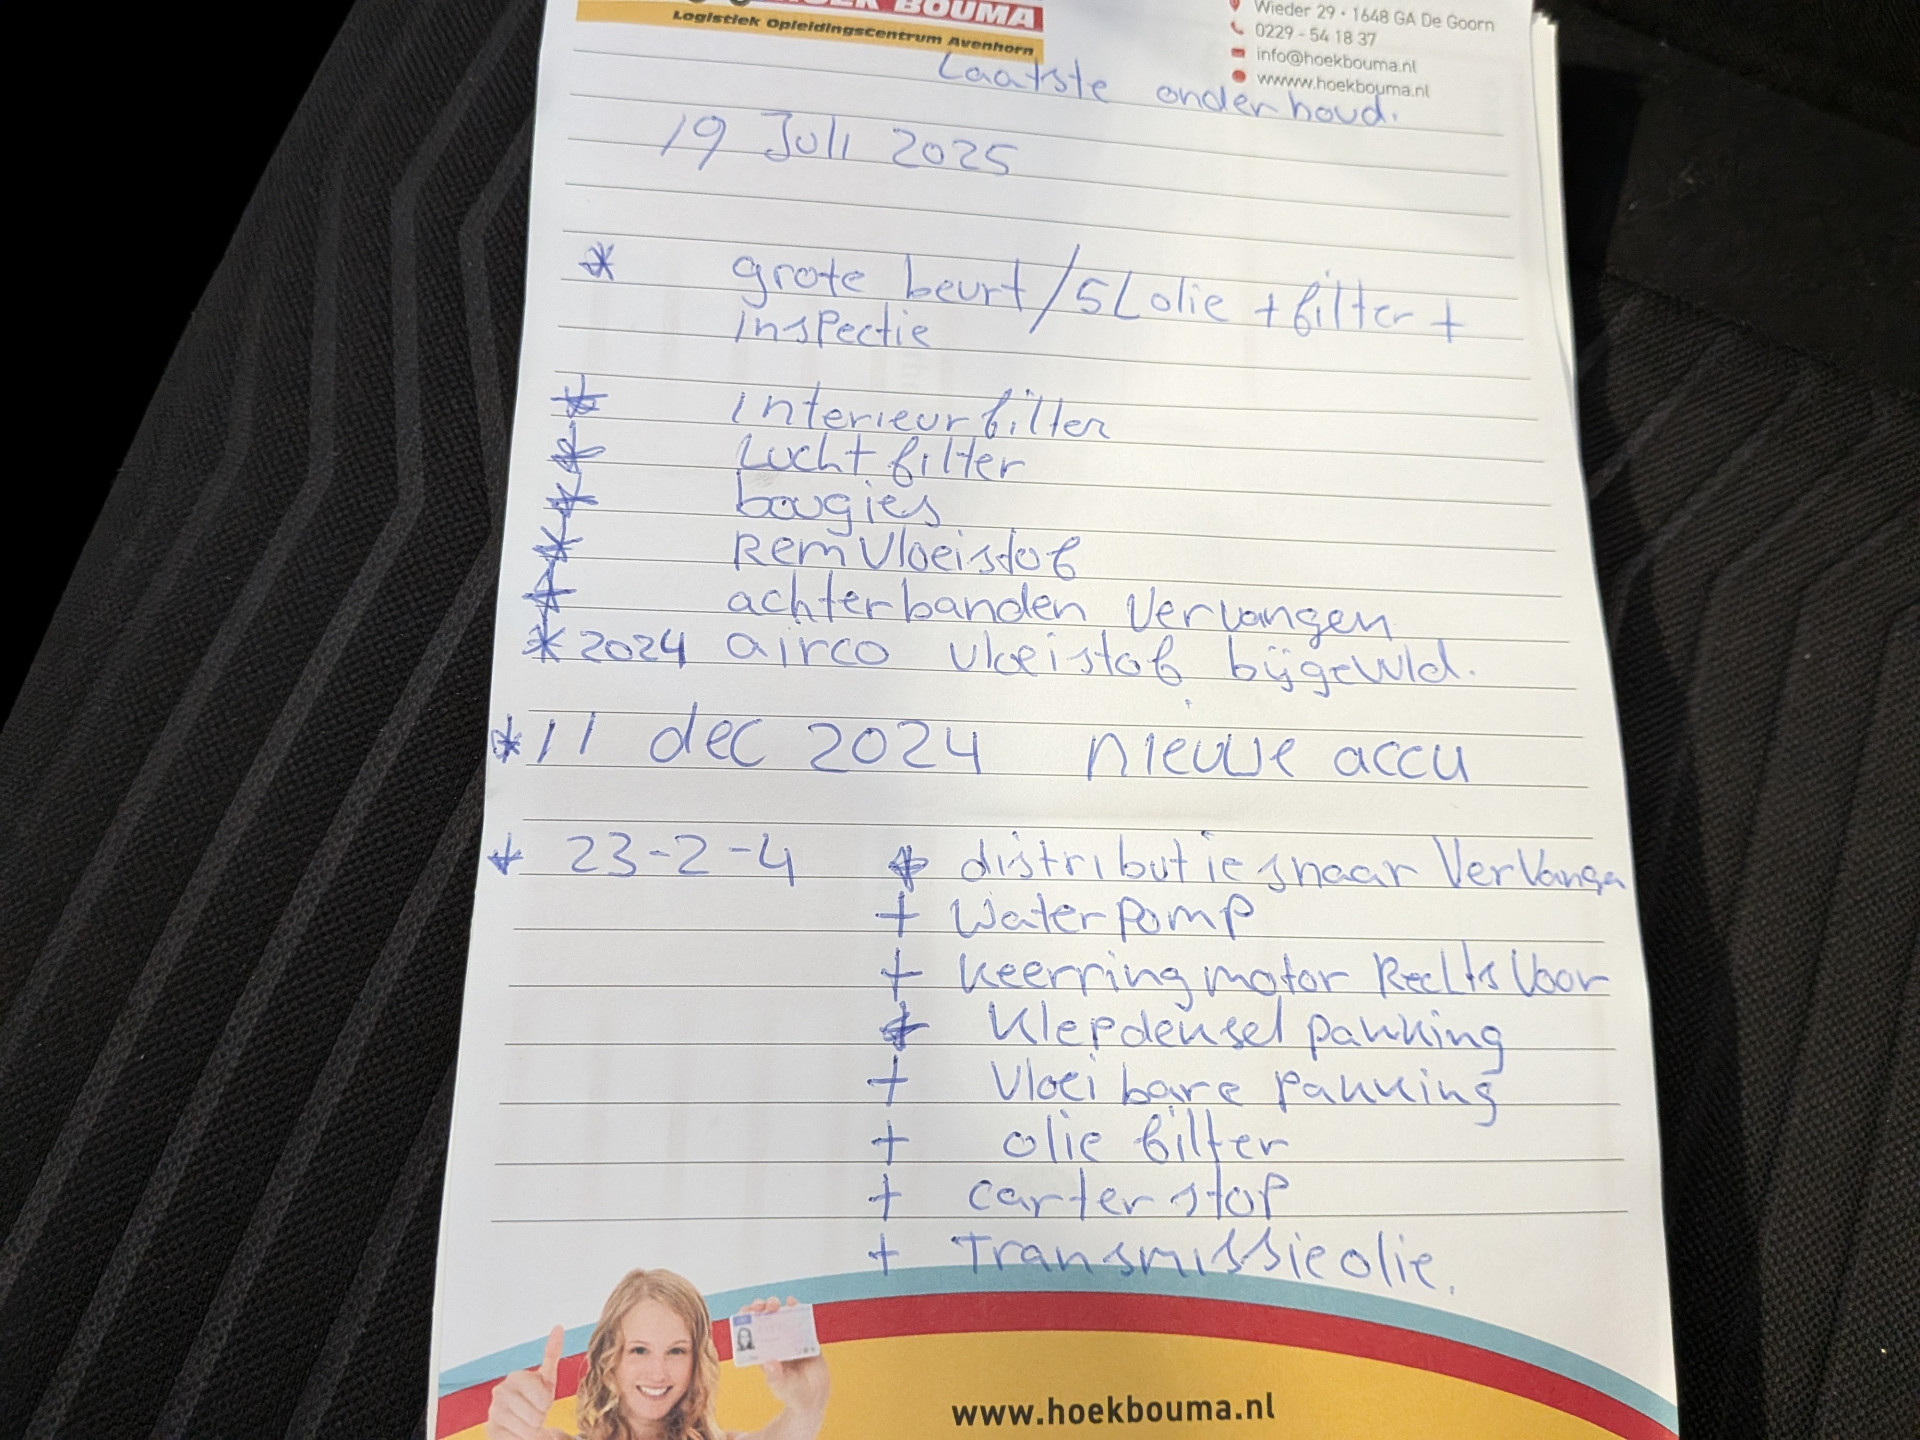 HOEK BOUMA
Logistiek Opleidingscentrum Avenhorn
Wieder 29 • 1648 GA De Goorn
0229 - 54 18 37
info@hoekbouma.nl
wwww.hoekbouma.nl
Laatste onderhoud.
19 Juli 2025
* grote beurt/5L olie + filter +
inspectie
* interieurfilter
* Luchtfilter
* bougies
* Remvloeistof
* achterbanden Vervangen
* 2024 airco vloeistof bijgevuld.
* 11 dec 2024 nieuwe accu
* 23-2-4 * distributiesnaar Vervangen
+ Waterpomp
+ keerring motor Rechts Voor
+ Klepdeksel pakking
+ Vloeibare pakking
+ olie filter
+ carter stop
+ Transmissieolie.
www.hoekbouma.nl